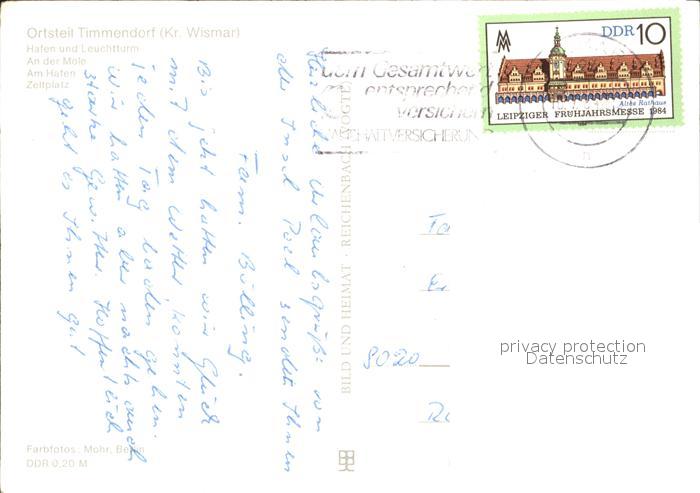 Ortsteil Timmendorf (Kr. Wismar)
Hafen und Leuchtturm
An der Mole
Am Hafen
Zeltplatz
Herzliche Urlaubsgrüße von
der Insel Poel sendet Ihnen
Fam. Bölling.
Bis jetzt hatten wir Glück
mit dem Wetter, konnten
jeden Tag baden gehen.
Wir hatten aber nachts auch
starke Gewitter. Hoffentlich
geht es Ihnen gut
Farbfotos: Mohr, Berlin
DDR 0,20 M
BILD UND HEIMAT · REICHENBACH (VOGTL
dem Gesamtwert
entsprechend
versichern
HAUSHALTVERSICHERUNG
DDR 10
Altes Rathaus
LEIPZIGER FRÜHJAHRSMESSE 1984
8020
privacy protection
Datenschutz